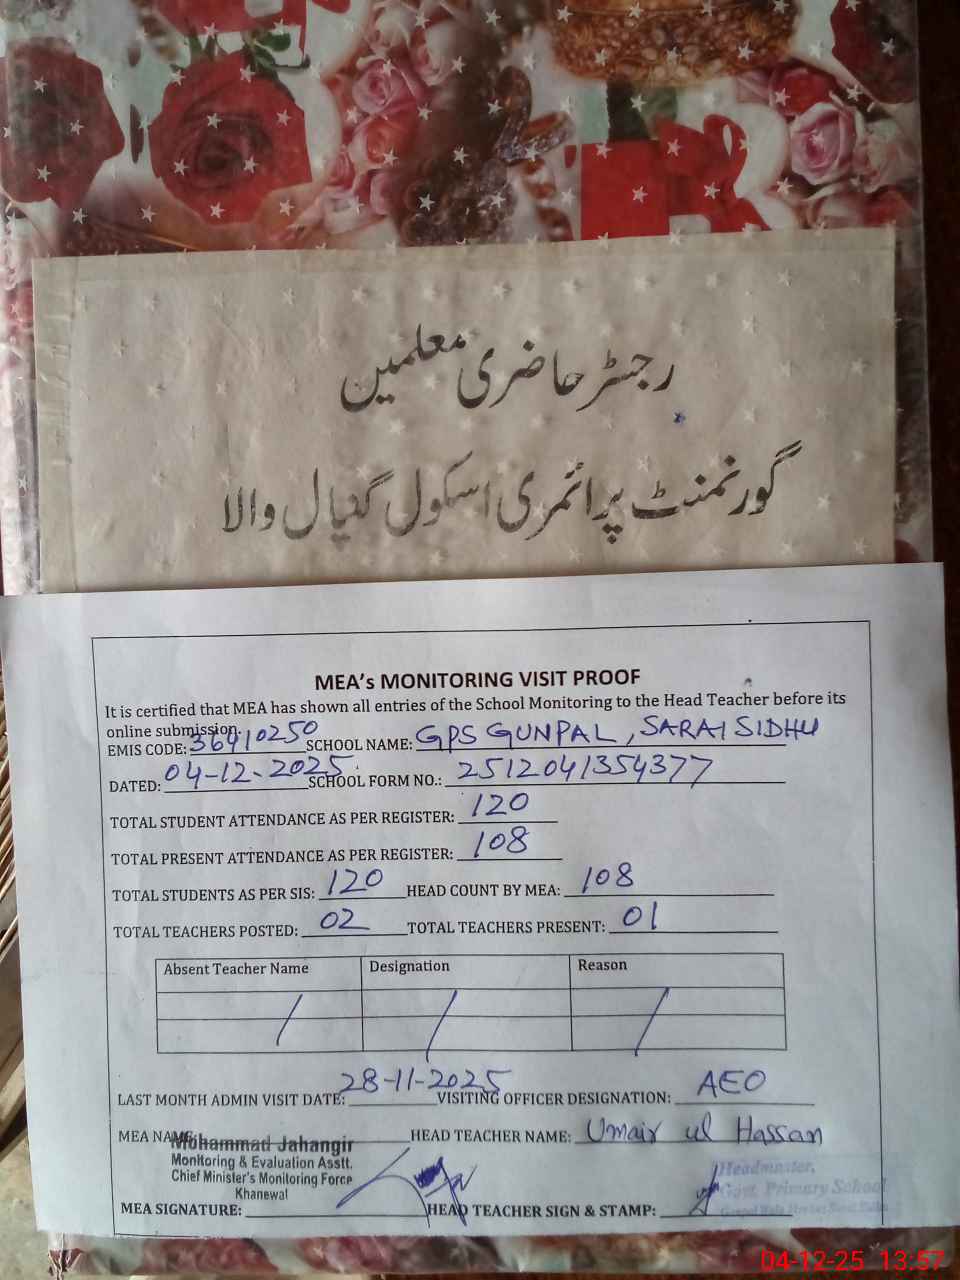 رجسٹر حاضری معلمین
گورنمنٹ پرائمری اسکول گنپال والا
MEA's MONITORING VISIT PROOF
It is certified that MEA has shown all entries of the School Monitoring to the Head Teacher before its
online submission.
EMIS CODE: 36410250 SCHOOL NAME: GPS GUNPAL, SARAI SIDHU
DATED: 04-12-2025 SCHOOL FORM NO.: 2512041354377
TOTAL STUDENT ATTENDANCE AS PER REGISTER: 120
TOTAL PRESENT ATTENDANCE AS PER REGISTER: 108
TOTAL STUDENTS AS PER SIS: 120 HEAD COUNT BY MEA: 108
TOTAL TEACHERS POSTED: 02 TOTAL TEACHERS PRESENT: 01
Absent Teacher Name Designation Reason
LAST MONTH ADMIN VISIT DATE: 28-11-2025 VISITING OFFICER DESIGNATION: AEO
MEA NAME: HEAD TEACHER NAME: Umair ul Hassan
Mohammad Jahangir
Monitoring & Evaluation Asstt.
Chief Minister's Monitoring Force
Khanewal
Headmaster,
Govt. Primary School
MEA SIGNATURE: HEAD TEACHER SIGN & STAMP:
04-12-25 13:57